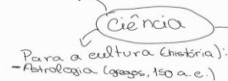 Ciência
Para a cultura (história):
- Astrologia (gregos, 150 a.c.)